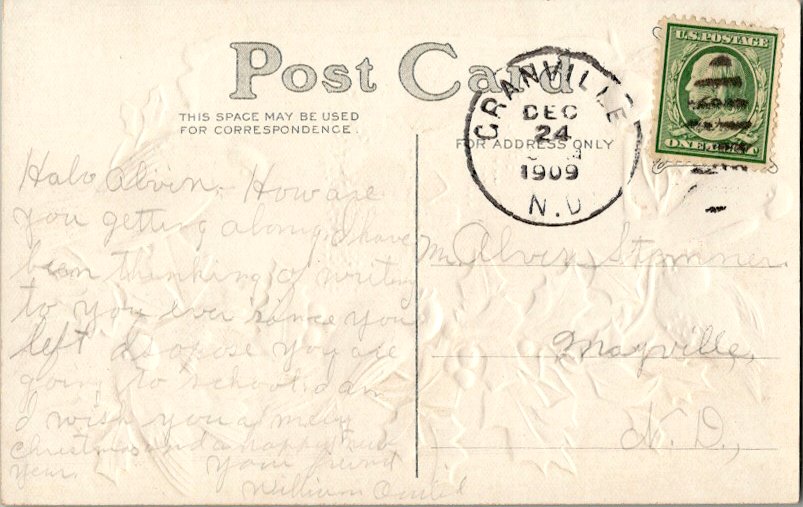 Post Card
THIS SPACE MAY BE USED
FOR CORRESPONDENCE.
FOR ADDRESS ONLY
GRANVILLE
DEC
24
1909
N.D
U.S. POSTAGE
ONE CENT
Halo Alvin. How are
you getting along, I have
been thinking of writing
to you ever since you
left I sopose you are
going to school. I am
I wish you a mery
Christmas and a happy new
year.
Your friend
William
Mr. Alvin Stammer
Mayville,
N. D.,